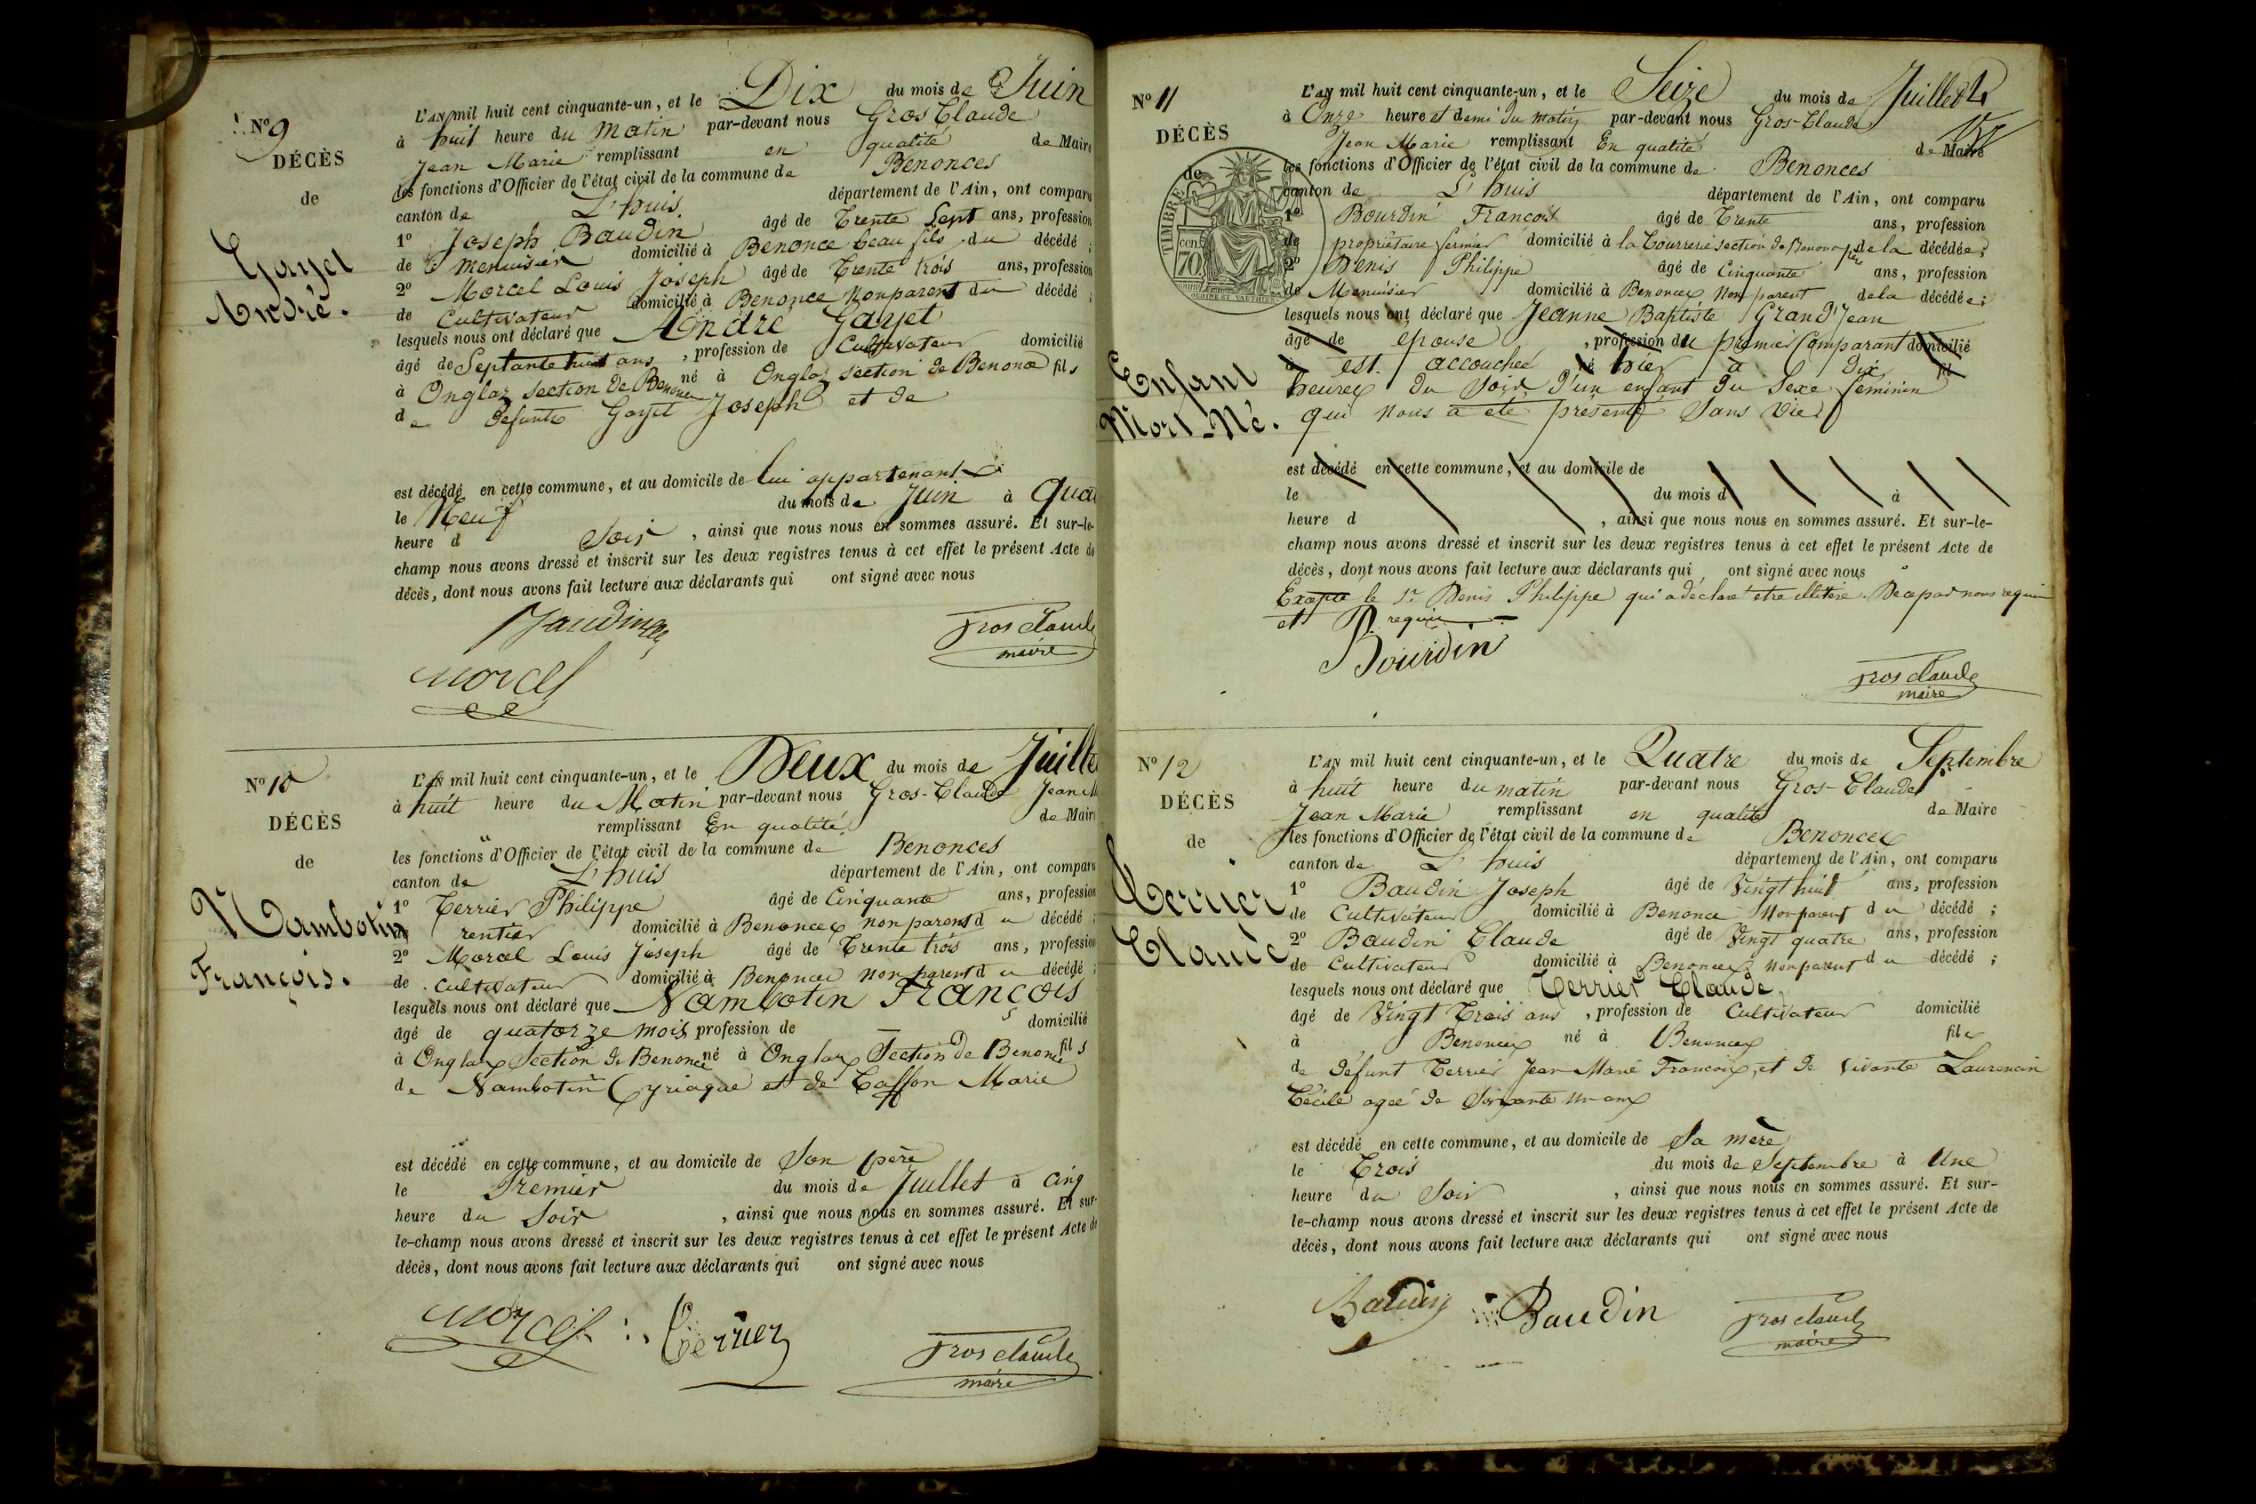 N° 9
DÉCÈS
de
Gayet
André.
L'AN mil huit cent cinquante-un, et le Dix du mois de Juin
à huit heure du Matin par-devant nous Gros Claude
Jean Marie remplissant en qualité de Maire
les fonctions d'Officier de l'état civil de la commune de Benonces
canton de L'huis département de l'Ain, ont comparu
1° Joseph Baudin âgé de Trente Sept ans, profession
de Menuisier domicilié à Benonce beau fils du décédé ;
2° Morcel Louis Joseph âgé de Trente trois ans, profession
de Cultivateur domicilié à Benonce Non parent du décédé ;
lesquels nous ont déclaré que André Gayet
âgé de Septante huit ans, profession de Cultivateur domicilié
à Onglas section de Benonces né à Onglas section de Benonce fils
de defunts Gayet Joseph et de
est décédé en cette commune, et au domicile de lui appartenant
le Neuf du mois de Juin à Qua
heure d Soir, ainsi que nous nous en sommes assuré. Et sur-le-
champ nous avons dressé et inscrit sur les deux registres tenus à cet effet le présent Acte de
décès, dont nous avons fait lecture aux déclarants qui ont signé avec nous
Baudin
Gros claude
maire
Morcel
N° 10
DÉCÈS
de
Nambotin
François.
L'AN mil huit cent cinquante-un, et le Deux du mois de Juille
à huit heure du Matin par-devant nous Gros-Claude Jean M
remplissant En qualité de Maire
les fonctions d'Officier de l'état civil de la commune de Benonces
canton de L'huis département de l'Ain, ont comparu
1° Terrier Philippe âgé de Cinquante ans, profession
rentier domicilié à Benonces non parent du décédé ;
2° Morcel Louis Joseph âgé de Trente trois ans, profession
de cultivateur domicilié à Benonces non parent du décédé ;
lesquels nous ont déclaré que Nambotin François
âgé de quatorze mois profession de — domicilié
à Onglas Section de Benonce né à Onglas Section de Benonce fils
de Nambotin Cyriaque et de Caffon Marie
est décédé en cette commune, et au domicile de Son père
le Premier du mois de Juillet à cinq
heure du Soir, ainsi que nous nous en sommes assuré. Et sur-
le-champ nous avons dressé et inscrit sur les deux registres tenus à cet effet le présent Acte de
décès, dont nous avons fait lecture aux déclarants qui ont signé avec nous
Morcel Terrier
Gros claude
maire
N° 11
DÉCÈS
de
TIMBRE
cen
70
Enfant
Mort-Né.
L'AN mil huit cent cinquante-un, et le Seize du mois de Juillet
à Onze heure et demi du matin par-devant nous Gros-Claude
Jean Marie remplissant En qualité de Maire
les fonctions d'Officier de l'état civil de la commune de Benonces
canton de L'huis département de l'Ain, ont comparu
1° Bourdin François âgé de Trente ans, profession
de propriétaire fermier domicilié à la Tourrerie section de Benonce père de la décédée ;
2° Denis Philippe âgé de Cinquante ans, profession
de Menuisier domicilié à Benonces Non parent de la décédée ;
lesquels nous ont déclaré que Jeanne Baptiste Grand'Jean
âgé de épouse, profession du premier Comparant domicilié
à est accouchée né hier à Dix fil
heures du soir d'un enfant du Sexe féminin
qui nous a été présenté Sans vie
est décédé en cette commune, et au domicile de
le du mois d à
heure d, ainsi que nous nous en sommes assuré. Et sur-le-
champ nous avons dressé et inscrit sur les deux registres tenus à cet effet le présent Acte de
décès, dont nous avons fait lecture aux déclarants qui ont signé avec nous
Excepté le Sr Denis Philippe qui a déclaré etre illétéré. De ce par nous requis
et requis
Bourdin
Gros claude
maire
N° 12
DÉCÈS
de
Terrier
Claude
L'AN mil huit cent cinquante-un, et le Quatre du mois de Septembre
à huit heure du matin par-devant nous Gros-Claude
Jean Marie remplissant en qualité de Maire
les fonctions d'Officier de l'état civil de la commune de Benonces
canton de L'huis département de l'Ain, ont comparu
1° Baudin Joseph âgé de Vingt huit ans, profession
de Cultivateur domicilié à Benonce Non parent du décédé ;
2° Baudin Claude âgé de Vingt quatre ans, profession
de Cultivateur domicilié à Benonces Non parent du décédé ;
lesquels nous ont déclaré que Terrier Claude
âgé de Vingt Trois ans, profession de Cultivateur domicilié
à Benonces né à Benonces fils
de défunt Terrier Jean Marie François, et de vivante Laurencin
Cécile agée de Soixante un ans
est décédé en cette commune, et au domicile de Sa mère
le Trois du mois de Septembre à Une
heure du Soir, ainsi que nous nous en sommes assuré. Et sur-
le-champ nous avons dressé et inscrit sur les deux registres tenus à cet effet le présent Acte de
décès, dont nous avons fait lecture aux déclarants qui ont signé avec nous
Baudin Baudin
Gros claude
maire